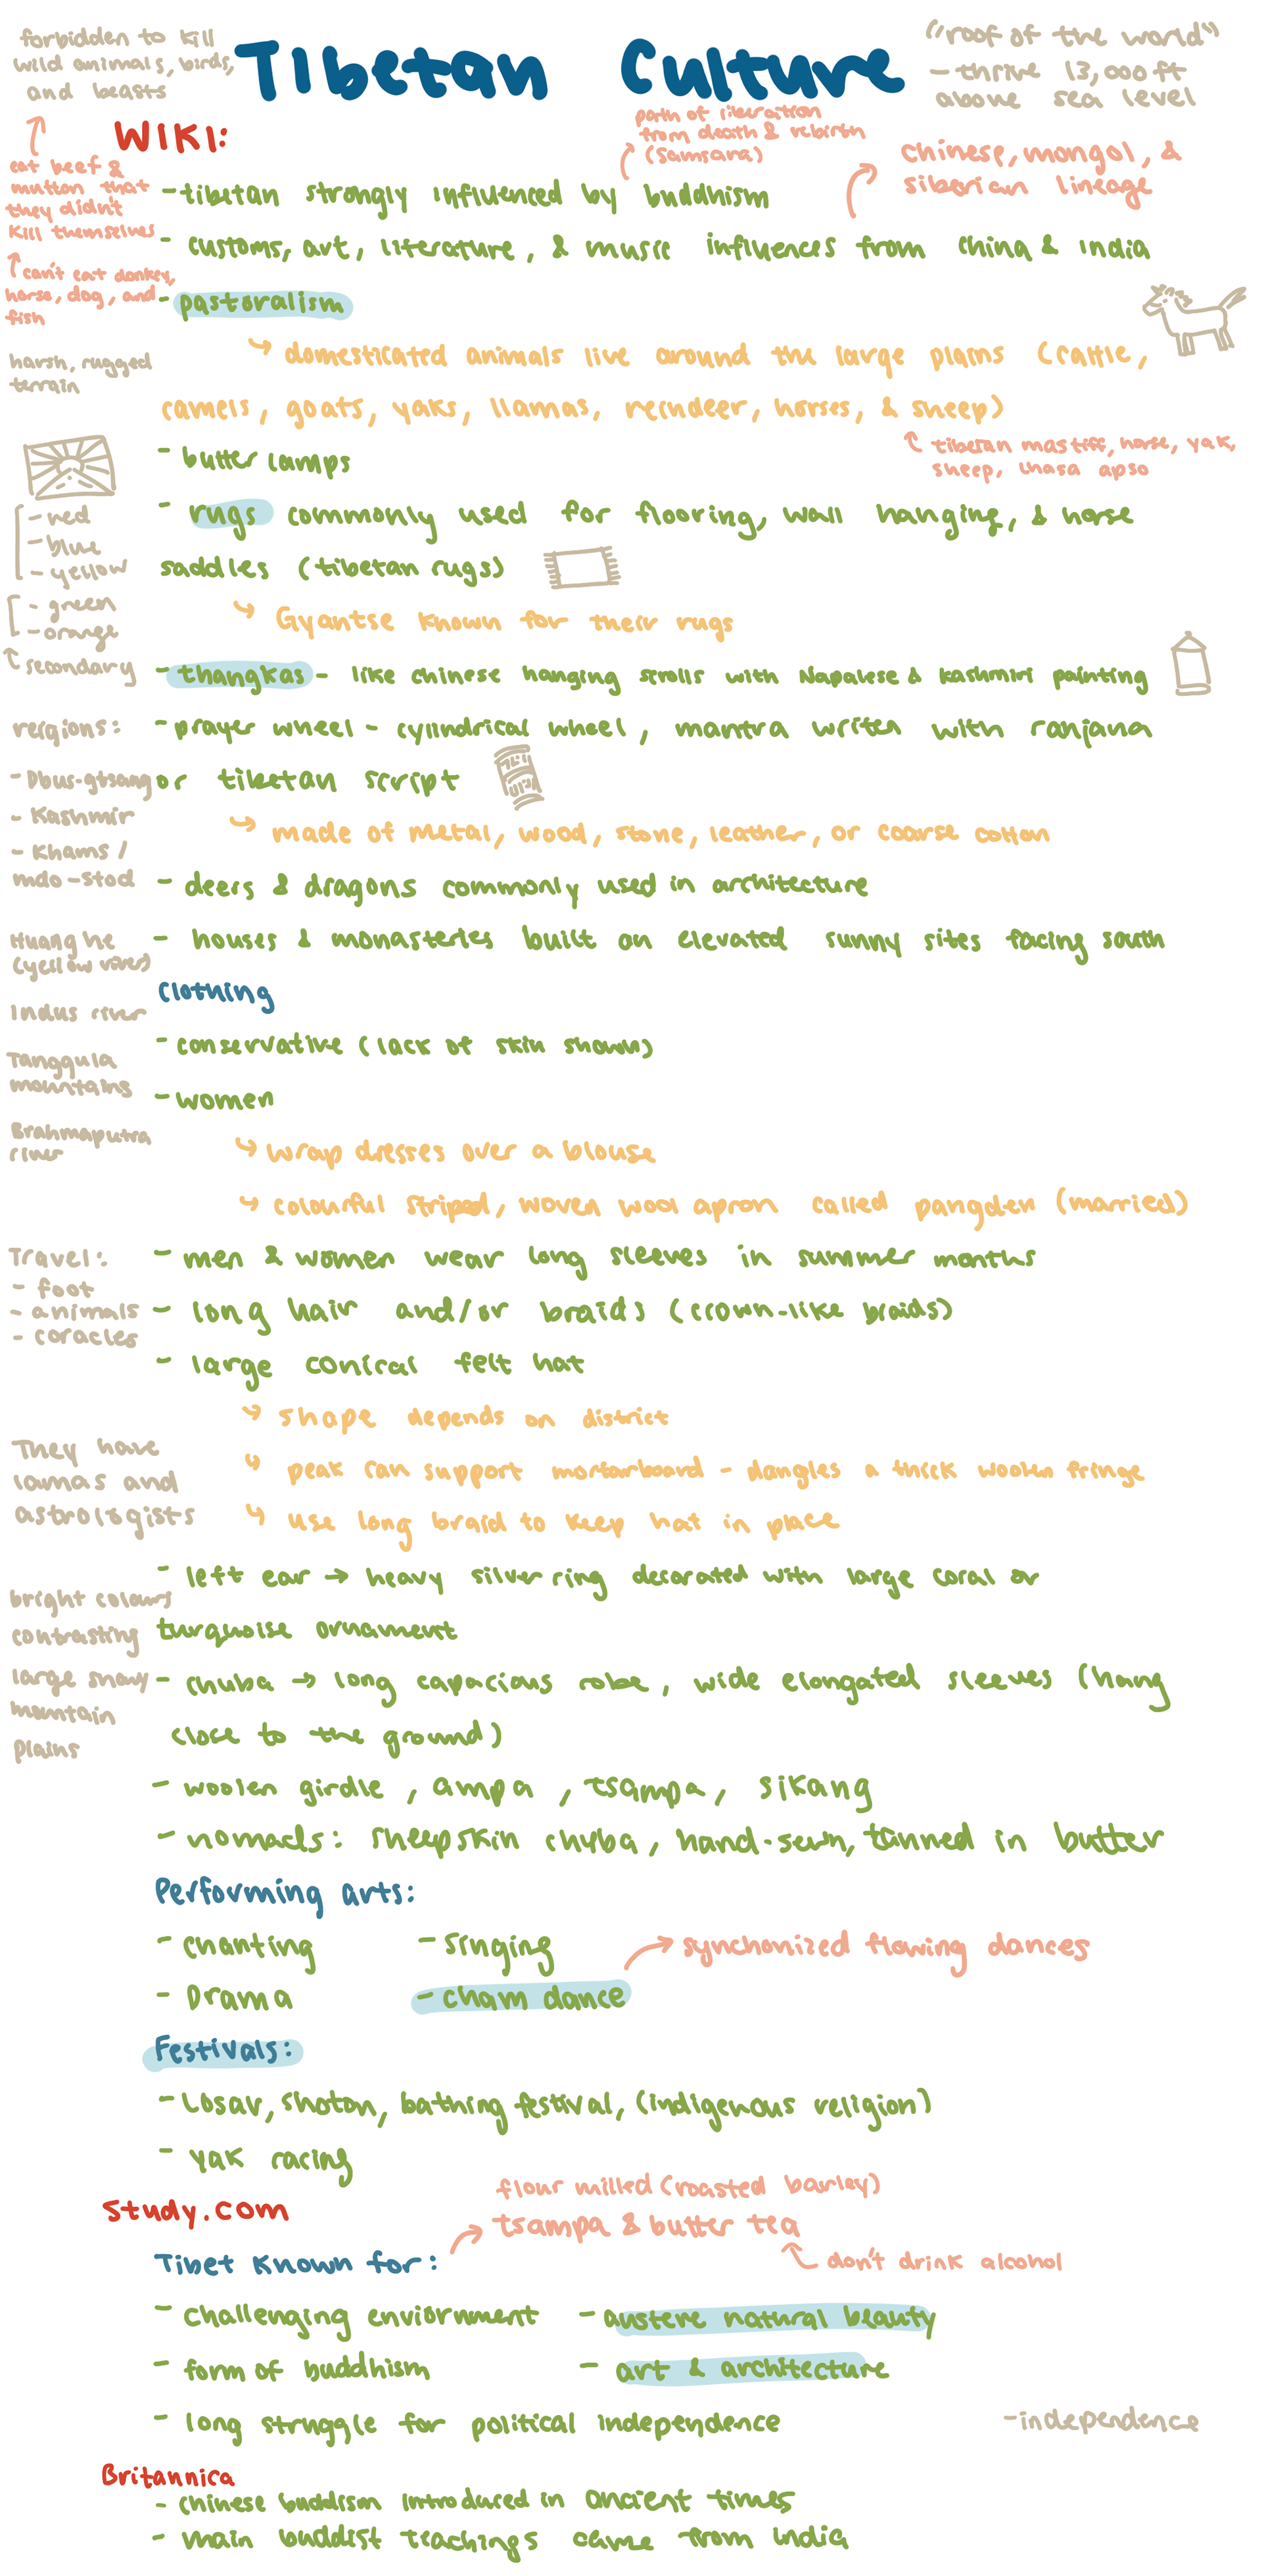 forbidden to kill
wild animals, birds,
and beasts
Tibetan Culture
("roof of the world")
- thrive 13,000ft
above sea level
WIKI:
path of liberation
from death & rebirth
(samsara)
chinese, mongol, &
siberian lineage
eat beef &
mutton that
they didn't
kill themselves
can't eat donkey,
horse, dog, and
fish
- tibetan strongly influenced by buddhism
- customs, art, literature, & music influences from china & india
- pastoralism
domesticated animals live around the large plains (cattle,
camels, goats, yaks, llamas, reindeer, horses, & sheep)
tibetan mastiff, horse, yak,
sheep, lhasa apso
harsh, rugged
terrain
- butter lamps
- rugs commonly used for flooring, wall hanging, & horse
saddles (tibetan rugs)
Gyantse known for their rugs
- red
- blue
- yellow
- green
- orange
secondary
- thangkas - like chinese hanging scrolls with Napalese & kashmiri painting
- prayer wheel - cylindrical wheel, mantra writen with ranjana
or tibetan script
made of metal, wood, stone, leather, or coarse cotton
- deers & dragons commonly used in architecture
- houses & monasteries built on elevated sunny sites facing south
reigions:
- Dbus-gtsang
- Kashmir
- Khams /
mdo-stod
Huang he
(yellow river)
Indus river
Tanggula
mountains
Brahmaputra
river
clothing
- conservative (lack of skin shown)
- women
wrap dresses over a blouse
colourful striped, woven wool apron called pangden (married)
- men & women wear long sleeves in summer months
- long hair and/or braids (crown-like braids)
- large conical felt hat
shape depends on district
peak can support mortarboard - dangles a thick woolen fringe
use long braid to keep hat in place
Travel:
- foot
- animals
- coracles
They have
lamas and
astrologists
bright colours
contrasting
large snowy
mountain
plains
- left ear → heavy silver ring decorated with large coral or
turquoise ornament
- chuba → long capacious robe, wide elongated sleeves (hang
close to the ground)
- woolen girdle, ampa, tsampa, sikang
- nomads: sheepskin chyba, hand-sewn, tanned in butter
Performing arts:
- chanting - singing
- Drama - cham dance
synchonized flowing dances
Festivals:
- Losar, shoton, bathing festival, (indigenous religion)
- yak racing
study.com
flour milled (roasted barley)
tsampa & butter tea
don't drink alcohol
Tibet known for:
- challenging enviornment - austere natural beauty
- form of buddhism - art & architecture
- long struggle for political independence
- independence
Britannica
- chinese buddism introduced in ancient times
- main buddist teachings came from india